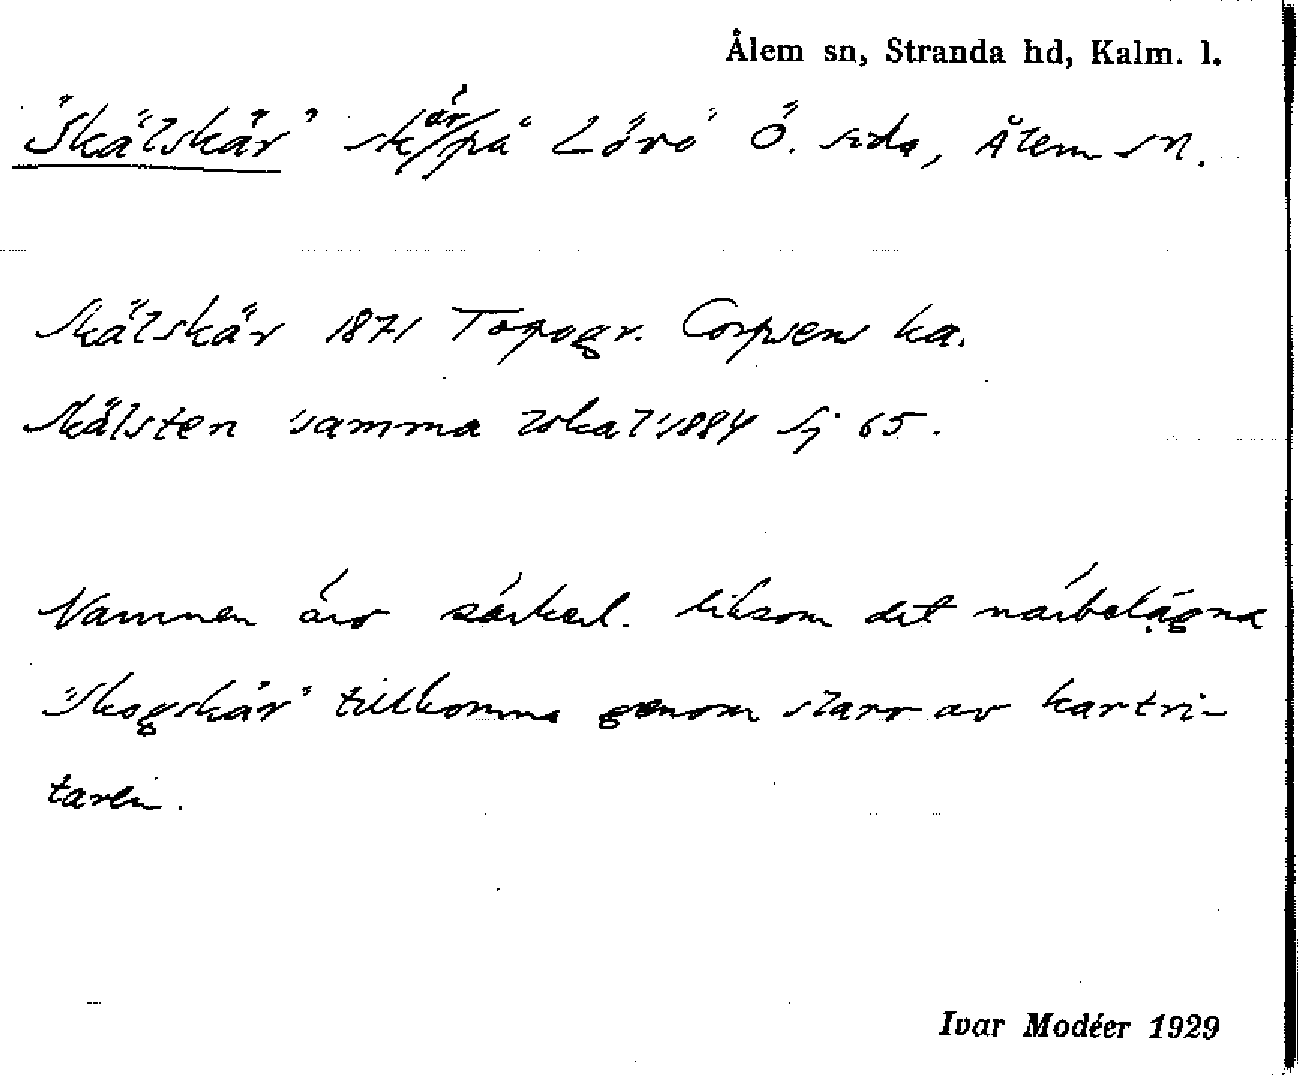 Ålem sn, Stranda hd, Kalm. l.
"Skälskär" skär på Lörö Ö. sida, Ålem sn.
Skälskär 1871 Topogr. Corpsens ka.
Skälsten samma lokal 1884 Sj 65.
Namnen äro särkerl. liksom det närbelägna
"Skogskär" tillkomna genom slarv av kartri-
taren.
Ivar Modéer 1929